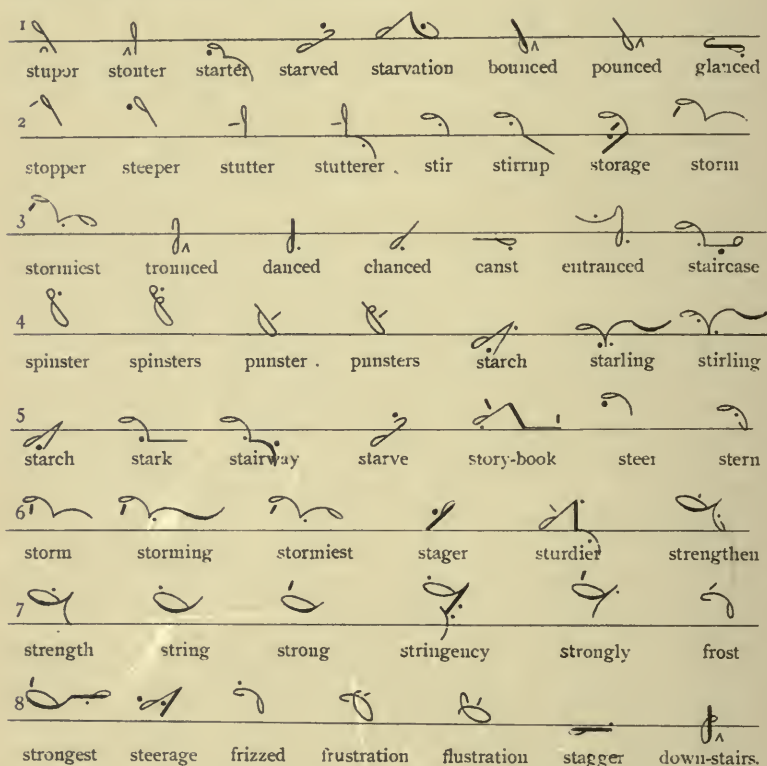 1
stupor stouter starter starved starvation bounced pounced glanced
2
stopper steeper stutter stutterer. stir stirrup storage storm
3
stormiest trounced danced chanced canst entranced staircase
4
spinster spinsters punster. punsters starch starling stirling
5
starch stark stairway starve story-book steer stern
6
storm storming stormiest stager sturdier strengthen
7
strength string strong stringency strongly frost
8
strongest steerage frizzed frustration flustration stagger down-stairs.